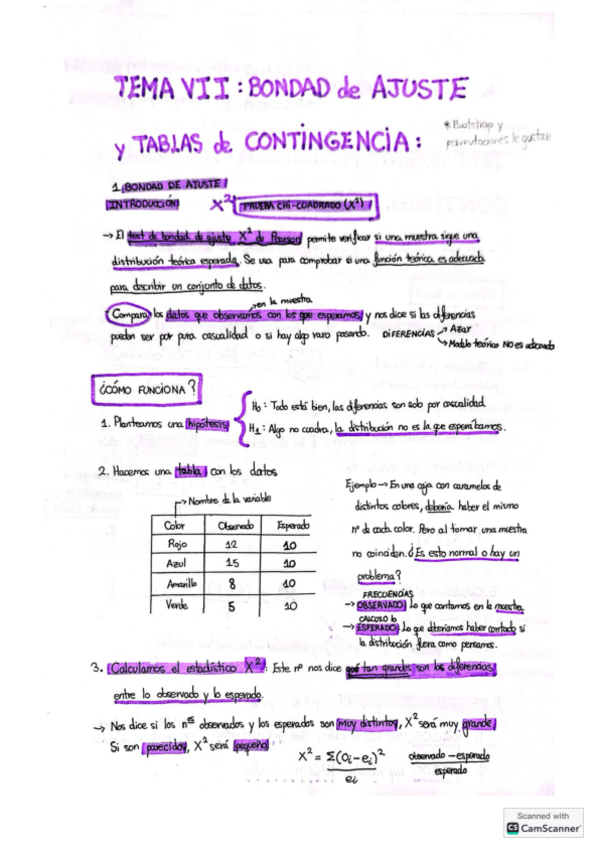 TEMA VII: BONDAD de AJUSTE
y TABLAS de CONTINGENCIA:
* Bootstrap y
permutaciones le gustan
1. BONDAD DE AJUSTE
INTRODUCCIÓN X² PRUEBA CHI-CUADRADO (X²)
→ El test de bondad de ajuste X² de Pearson permite verificar si una muestra sigue una
distribución teórica esperada. Se usa para comprobar si una función teórica es adecuada
para describir un conjunto de datos.
→ en la muestra
Compara los datos que observamos con los que esperamos y nos dice si las diferencias
pueden ser por pura casualidad o si hay algo raro pasando. DIFERENCIAS → Azar
→ Modelo teórico NO es adecuado
¿CÓMO FUNCIONA?
1. Planteamos una hipótesis
H₀: Todo está bien, las diferencias son solo por casualidad
H₁: Algo no cuadra, la distribución no es la que esperábamos.
2. Hacemos una tabla con los datos
→ Nombre de la variable
Color Observado Esperado
Rojo 12 10
Azul 15 10
Amarillo 8 10
Verde 5 10
Ejemplo → En una caja con caramelos de
distintos colores, debería haber el mismo
nº de cada color. Pero al tomar una muestra
no coinciden. ¿Es esto normal o hay un
problema?
FRECUENCIAS
→ OBSERVADO: Lo que contamos en la muestra
CALCULO lo
→ ESPERADO: Lo que deberíamos haber contado si
la distribución fuera como pensamos.
3. Calculamos el estadístico X²: Este nº nos dice qué tan grandes son las diferencias
entre lo observado y lo esperado.
→ Nos dice si los nºs observados y los esperados son muy distintos, X² será muy grande
Si son parecidos, X² será pequeña
X² = Σ(oi-ei)²
ei
observado-esperado
esperado
Scanned with
CS CamScanner